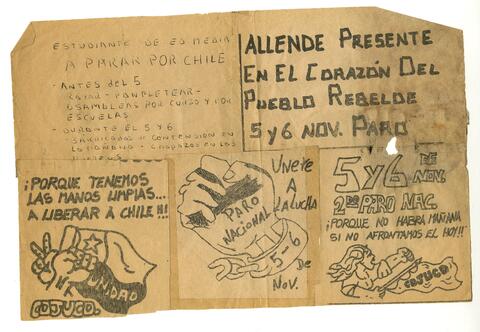 ESTUDIANTE DE ED MEDIA
A PARAR POR CHILE
- ANTES del 5
RAYAR - PANFLETEAR -
ASAMBLEAS POR CURSO Y POR
ESCUELAS
- DURANTE EL 5 Y 6
BARRICADAS DE CONTENSION EN
LA MAÑANA - CADENAZOS EN LOS
ALLENDE PRESENTE
EN EL CORAZÓN DEL
PUEBLO REBELDE
5 Y 6 NOV. PARO
¡PORQUE TENEMOS
LAS MANOS LIMPIAS...
A LIBERAR À CHILE !!!
UNIDAD
COJUCO.
UNETE
A
LA LUCHA
PARO
NACIONAL
5-6
De
Nov.
5 Y 6 DE
NOV.
2do PARO NAC.
¡PORQUE NO HABRA MAÑANA
SI NO AFRONTAMOS EL HOY!!"
COJUCO